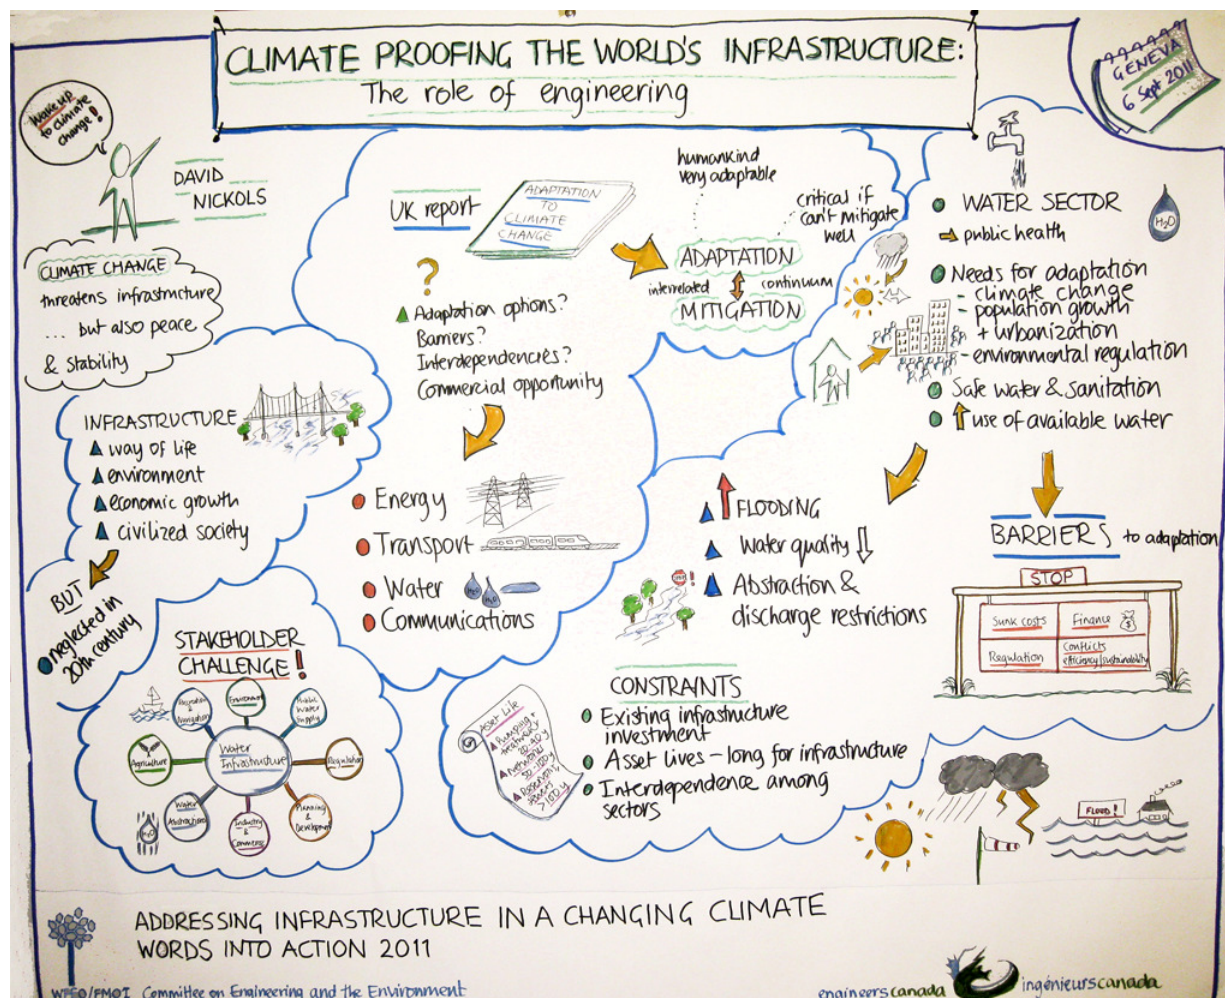 CLIMATE PROOFING THE WORLD'S INFRASTRUCTURE:
The role of engineering
GENEVA
6 Sept 2011
Wake up
to climate
change!
DAVID
NICKOLS
CLIMATE CHANGE
threatens infrastructure
... but also peace
& stability
INFRASTRUCTURE
way of life
environment
economic growth
civilized society
BUT
neglected in
20th century
STAKEHOLDER
CHALLENGE!
Water
Infrastructure
Environment
Public
Water
Supply
Regulation
Planning
&
Development
Industry
&
Commerce
Water
Abstraction
Agriculture
Recreation
&
Navigation
H2O
UK report
ADAPTATION
TO
CLIMATE
CHANGE
?
Adaptation options?
Barriers?
Interdependencies?
Commercial opportunity
Energy
Transport
Water
H2O
H2O
Communications
humankind
very adaptable
critical if
can't mitigate
well
ADAPTATION
interrelated
continuum
MITIGATION
WATER SECTOR
H2O
public health
Needs for adaptation
- climate change
- population growth
+ urbanization
- environmental regulation
Safe water & sanitation
use of available water
FLOODING
Water quality
Abstraction &
discharge restrictions
STOP!
CONSTRAINTS
Existing infrastructure
investment
Asset lives – long for infrastructure
Interdependence among
sectors
Asset Life
Pumping +
treatment
20-40y
Networks
50-100y
Reservoirs,
>100y
BARRIERS to adaptation
STOP
Sunk costs
Finance
$
Regulation
Conflicts
efficiency/sustainability
FLOOD!
ADDRESSING INFRASTRUCTURE IN A CHANGING CLIMATE
WORDS INTO ACTION 2011
WFEO/FMOI Committee on Engineering and the Environment
engineerscanada
ingénieurscanada